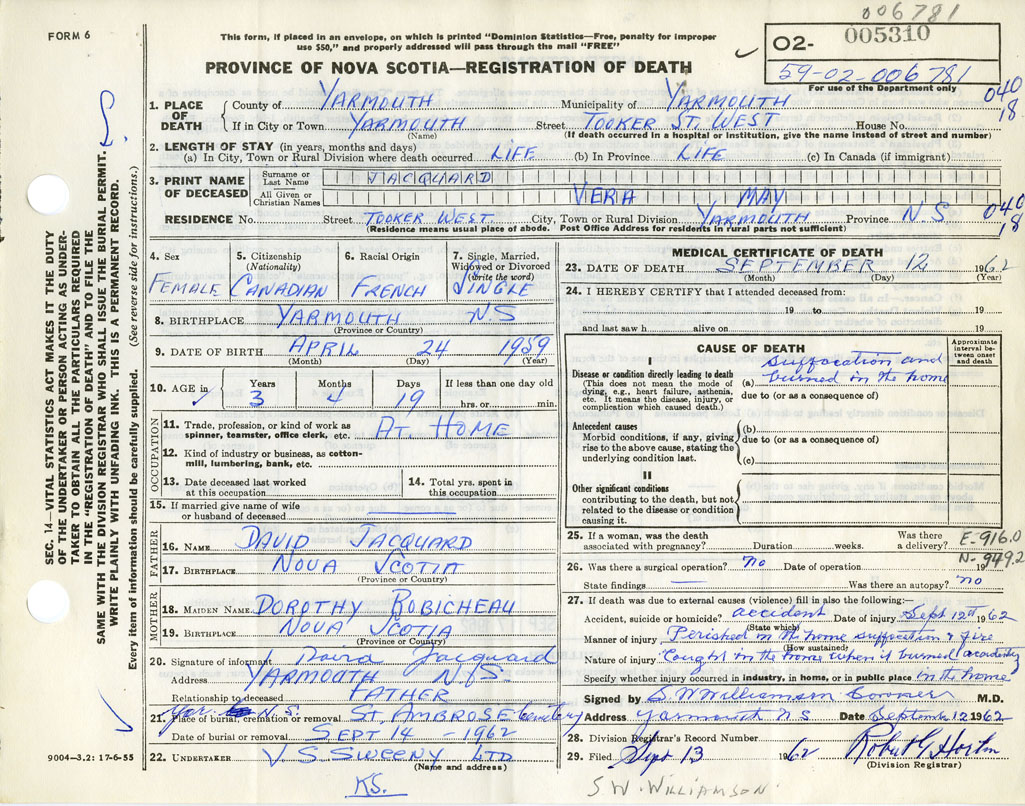 006781
FORM 6
This form, if placed in an envelope, on which is printed "Dominion Statistics—Free, penalty for improper
use $50," and properly addressed will pass through the mail "FREE"
02- 005310
59-02-006781
For use of the Department only
PROVINCE OF NOVA SCOTIA—REGISTRATION OF DEATH
1. PLACE OF DEATH County of YARMOUTH Municipality of YARMOUTH 040
If in City or Town YARMOUTH Street TOOKER ST. WEST House No. 18
(Name) (If death occurred in a hospital or institution, give the name instead of street and number)
2. LENGTH OF STAY (in years, months and days)
(a) In City, Town or Rural Division where death occurred LIFE (b) In Province LIFE (c) In Canada (if immigrant)
3. PRINT NAME OF DECEASED Surname or Last Name JACQUARD
All Given or Christian Names VERA MAY
RESIDENCE No. Street TOOKER WEST. City, Town or Rural Division YARMOUTH Province NS 040 18
(Residence means usual place of abode. Post Office Address for residents in rural parts not sufficient)
SEC. 14—VITAL STATISTICS ACT MAKES IT THE DUTY
OF THE UNDERTAKER OR PERSON ACTING AS UNDER-
TAKER TO OBTAIN ALL THE PARTICULARS REQUIRED
IN THE "REGISTRATION OF DEATH" AND TO FILE THE
SAME WITH THE DIVISION REGISTRAR WHO SHALL ISSUE THE BURIAL PERMIT.
WRITE PLAINLY WITH UNFADING INK. THIS IS A PERMANENT RECORD.
Every item of information should be carefully supplied. (See reverse side for instructions.)
4. Sex FEMALE
5. Citizenship (Nationality) CANADIAN
6. Racial Origin FRENCH
7. Single, Married, Widowed or Divorced (Write the word) SINGLE
8. BIRTHPLACE YARMOUTH NS
(Province or Country)
9. DATE OF BIRTH APRIL 24 1959
(Month) (Day) (Year)
10. AGE in Years Months Days If less than one day old
3 4 19 hrs. or min.
OCCUPATION
11. Trade, profession, or kind of work as
spinner, teamster, office clerk, etc. AT HOME
12. Kind of industry or business, as cotton-
mill, lumbering, bank, etc.
13. Date deceased last worked
at this occupation
14. Total yrs. spent in
this occupation
15. If married give name of wife
or husband of deceased
FATHER
16. NAME DAVID JACQUARD
17. BIRTHPLACE NOVA SCOTIA
(Province or Country)
MOTHER
18. MAIDEN NAME DOROTHY ROBICHEAU
19. BIRTHPLACE NOVA SCOTIA
(Province or Country)
20. Signature of informant David Jacquard
Address YARMOUTH N.S.
Relationship to deceased FATHER
Yar. N.S.
21. Place of burial, cremation or removal ST. AMBROSE Cemetery
Date of burial or removal SEPT 14 - 1962
22. UNDERTAKER V.S. SWEENY LTD
(Name and address)
KS.
9004—3.2: 17-6-55
MEDICAL CERTIFICATE OF DEATH
23. DATE OF DEATH SEPTEMBER 12 1962
(Month) (Day) (Year)
24. I HEREBY CERTIFY that I attended deceased from:
19 to 19
and last saw h alive on 19
CAUSE OF DEATH
Approximate interval between onset and death
I
Disease or condition directly leading to death
(This does not mean the mode of
dying, e.g., heart failure, asthenia,
etc. It means the disease, injury, or
complication which caused death.)
(a) suffocation and
burned in the home
due to (or as a consequence of)
Antecedent causes
Morbid conditions, if any, giving
rise to the above cause, stating the
underlying condition last.
(b)
due to (or as a consequence of)
(c)
II
Other significant conditions
contributing to the death, but not
related to the disease or condition
causing it.
25. If a woman, was the death
associated with pregnancy? Duration weeks. Was there
a delivery? E-916.0
N-949.2
26. Was there a surgical operation? no Date of operation 19
State findings — Was there an autopsy? no
27. If death was due to external causes (violence) fill in also the following:—
Accident, suicide or homicide? accident Date of injury Sept 12th 1962
(State which)
Manner of injury Perished in the home suffocation & fire
(How sustained)
Nature of injury Caught in the home when it burned accidently
Specify whether injury occurred in industry, in home, or in public place in the home
Signed by S.W. Williamson Coroner M.D.
Address Yarmouth N S Date September 12 1962
28. Division Registrar's Record Number
29. Filed Sept 13 1962 Robert G. Horton
(Division Registrar)
S. W. WILLIAMSON